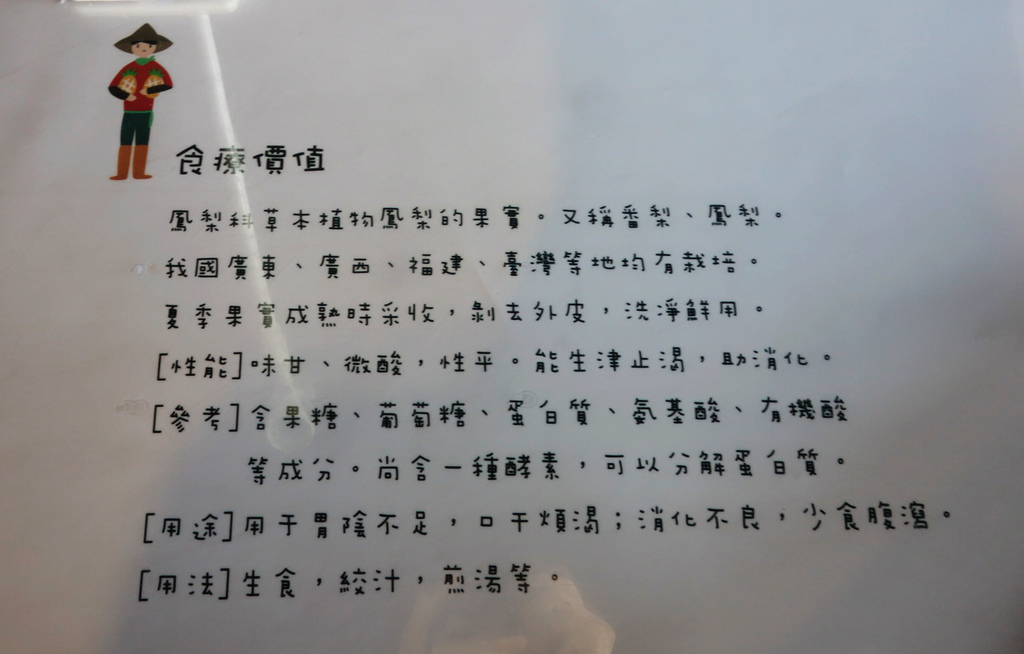 食療價值
鳳梨科草本植物鳳梨的果實。又稱番梨、鳳梨。
我國廣東、廣西、福建、臺灣等地均有栽培。
夏季果實成熟時采收，剝去外皮，洗淨鮮用。
[性能]味甘、微酸，性平。能生津止渴，助消化。
[參考]含果糖、葡萄糖、蛋白質、氨基酸、有機酸
等成分。尚含一種酵素，可以分解蛋白質。
[用途]用于胃陰不足，口干煩渴；消化不良，少食腹瀉。
[用法]生食，絞汁，煎湯等。